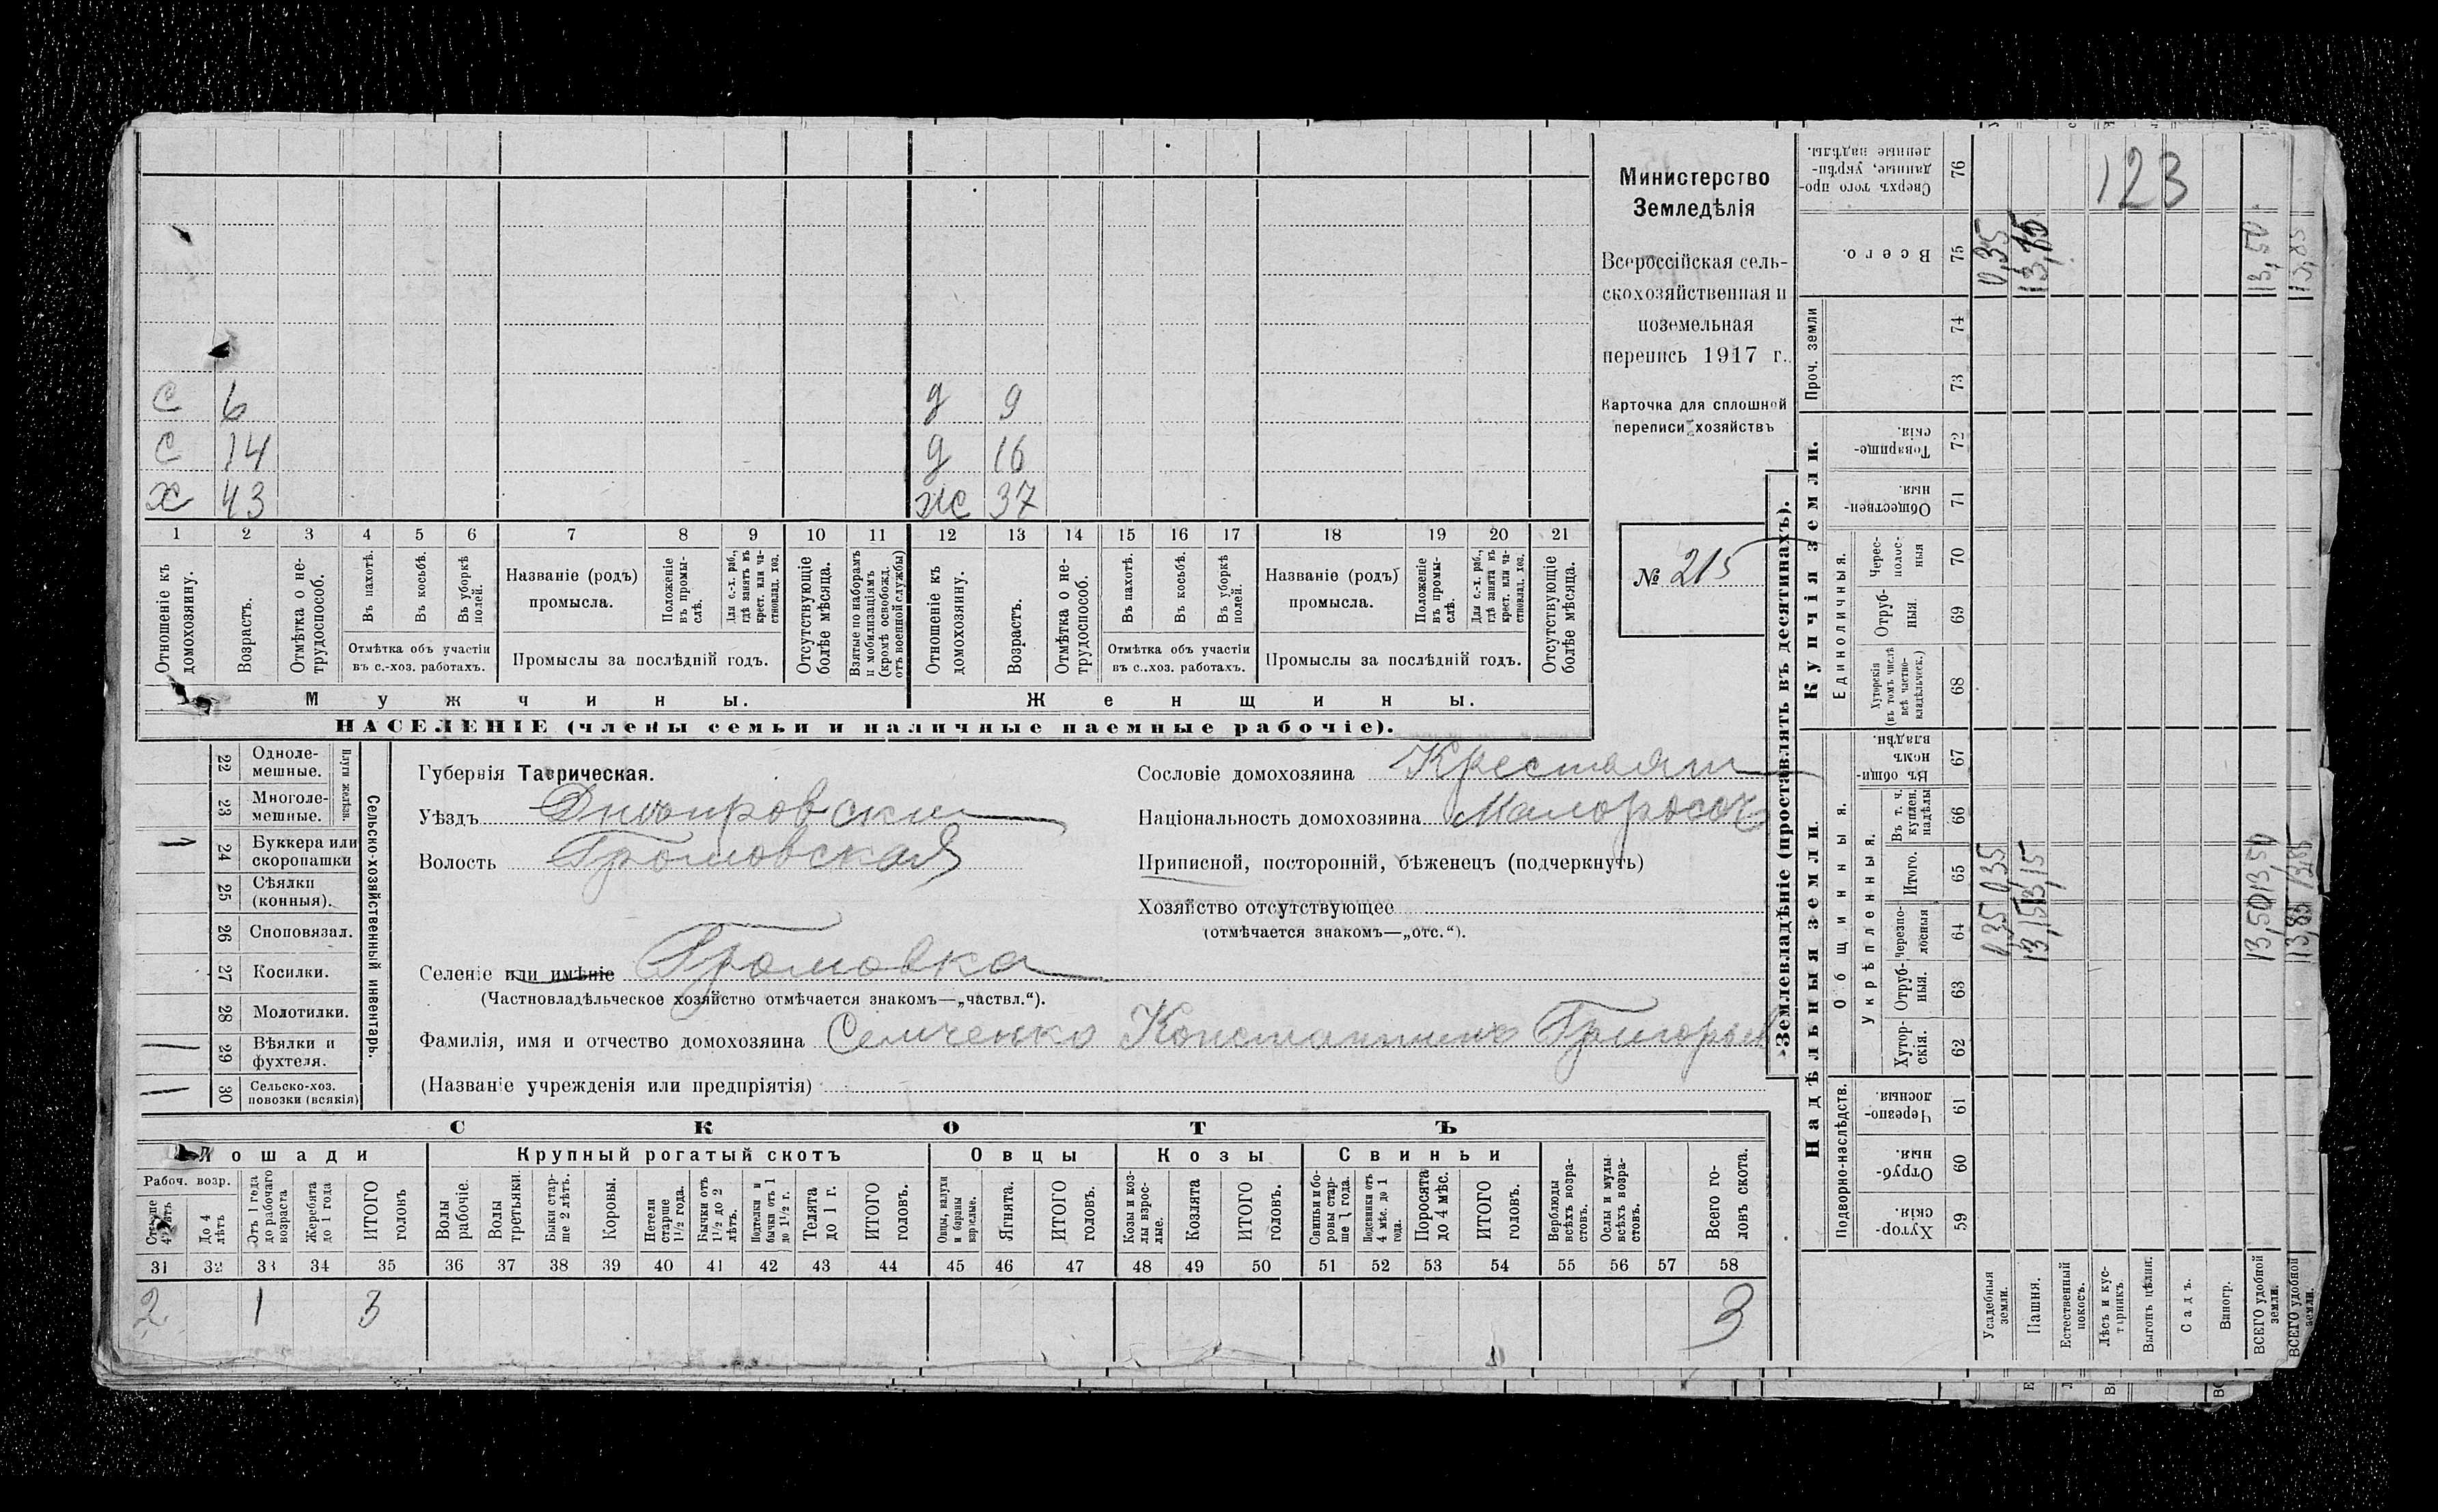 с 6 д 9
с 14 д 16
х 43 ж 37
1 2 3 4 5 6 7 8 9 10 11 12 13 14 15 16 17 18 19 20 21
Отношеніе къ домохозяину.
Возрастъ.
Отмѣтка о нетрудоспособ.
Въ пахотѣ.
Въ косьбѣ.
Въ уборкѣ полей.
Отмѣтка объ участіи
въ с.-хоз. работахъ.
Названіе (родъ)
промысла.
Положеніе въ промыслѣ.
Для с.-х. раб., гдѣ занятъ въ крест. или частновлад. хоз.
Промыслы за послѣдній годъ.
Отсутствующіе болѣе мѣсяца.
Взятые по наборамъ и мобилизаціямъ (кромѣ освобожд. отъ военной службы)
Отношеніе къ домохозяину.
Возрастъ.
Отмѣтка о нетрудоспособ.
Въ пахотѣ.
Въ косьбѣ.
Въ уборкѣ полей.
Отмѣтка объ участіи
въ с.-хоз. работахъ.
Названіе (родъ)
промысла.
Положеніе въ промыслѣ.
Для с.-х. раб., гдѣ занята въ крест. или частновлад. хоз.
Промыслы за послѣдній годъ.
Отсутствующіе болѣе мѣсяца.
Мужчины. Женщины.
НАСЕЛЕНІЕ (члены семьи и наличные наемные рабочіе).
Министерство
Земледѣлія
Всероссійская сель-
скохозяйственная и
поземельная
перепись 1917 г.
Карточка для сплошной
переписи хозяйствъ
№ 215
22 Одноле-
мешные.
23 Многоле-
мешные.
Плуги желѣзн.
24 Буккера или
скоропашки
25 Сѣялки
(конныя).
26 Сноповязал.
27 Косилки.
28 Молотилки.
29 Вѣялки и
фухтеля.
30 Сельско-хоз.
повозки (всякія)
Сельско-хозяйственный инвентарь.
Губернія Таврическая.
Уѣздъ Днѣпровскій
Волость Громовская
Селеніе или имѣніе Громовка
(Частновладѣльческое хозяйство отмѣчается знакомъ—„частвл.“).
Фамилія, имя и отчество домохозяина Семченко Константинъ Григорьев
(Названіе учрежденія или предпріятія)
Сословіе домохозяина Крестьян
Національность домохозяина Малоросс
Приписной, посторонній, бѣженецъ (подчеркнуть)
Хозяйство отсутствующее
(отмѣчается знакомъ—„отс.“).
СКОТЪ
Лошади Крупный рогатый скотъ Овцы Козы Свиньи
Рабоч. возр.
Старше 4 лѣтъ
До 4 лѣтъ
Отъ 1 года до рабочаго возраста
Жеребята до 1 года
ИТОГО головъ
Волы рабочіе.
Волы третьяки.
Быки старше 2 лѣтъ.
Коровы.
Нетели старше 1½ года.
Бычки отъ 1½ до 2 лѣтъ.
Подтелки и бычки отъ 1 до 1½ г.
Телята до 1 г.
ИТОГО головъ.
Овцы, валухи и бараны взрослые.
Ягнята.
ИТОГО головъ.
Козы и козлы взрослые.
Козлята
ИТОГО головъ.
Свиньи и боровы старше 1 года.
Подсвинки отъ 4 мѣс. до 1 года.
Поросята до 4 мѣс.
ИТОГО головъ.
Верблюды всѣхъ возрастовъ.
Ослы и мулы всѣхъ возрастовъ.
Всего головъ скота.
31 32 33 34 35 36 37 38 39 40 41 42 43 44 45 46 47 48 49 50 51 52 53 54 55 56 57 58
2 1 3 3
Землевладѣніе (проставлять въ десятинахъ).
Купчія земли.
Надѣльныя земли
Сверхъ того проданные, укрѣпленные надѣлы. 76 123
Всего. 75 0,35 13,15 13,50 13,85
Проч. земли 74 73
Товарищескія. 72
Общественныя. 71
Единоличныя.
Черес-полосныя 70
Отрубныя. 69
Хуторскія (въ томъ числѣ всѣ частновладѣльческ.) 68
Общинныя.
Въ общинномъ владѣн. 67
Укрѣпленныя.
Въ т. ч. куплен. надѣлы 66
Итого. 65 0,35 13,15 13,50 13,85
Черезполосныя 64 0,35 13,15 13,50 13,85
Отрубныя. 63
Хуторскія. 62
Подворно-наслѣдств.
Черезполосныя. 61
Отрубныя. 60
Хуторскія. 59
Усадебныя земли.
Пашня.
Естественный покосъ.
Лѣсъ и кустарникъ
Выгонъ цѣлин.
Садъ.
Виногр.
ВСЕГО удобной земли.
ВСЕГО удобной земли.